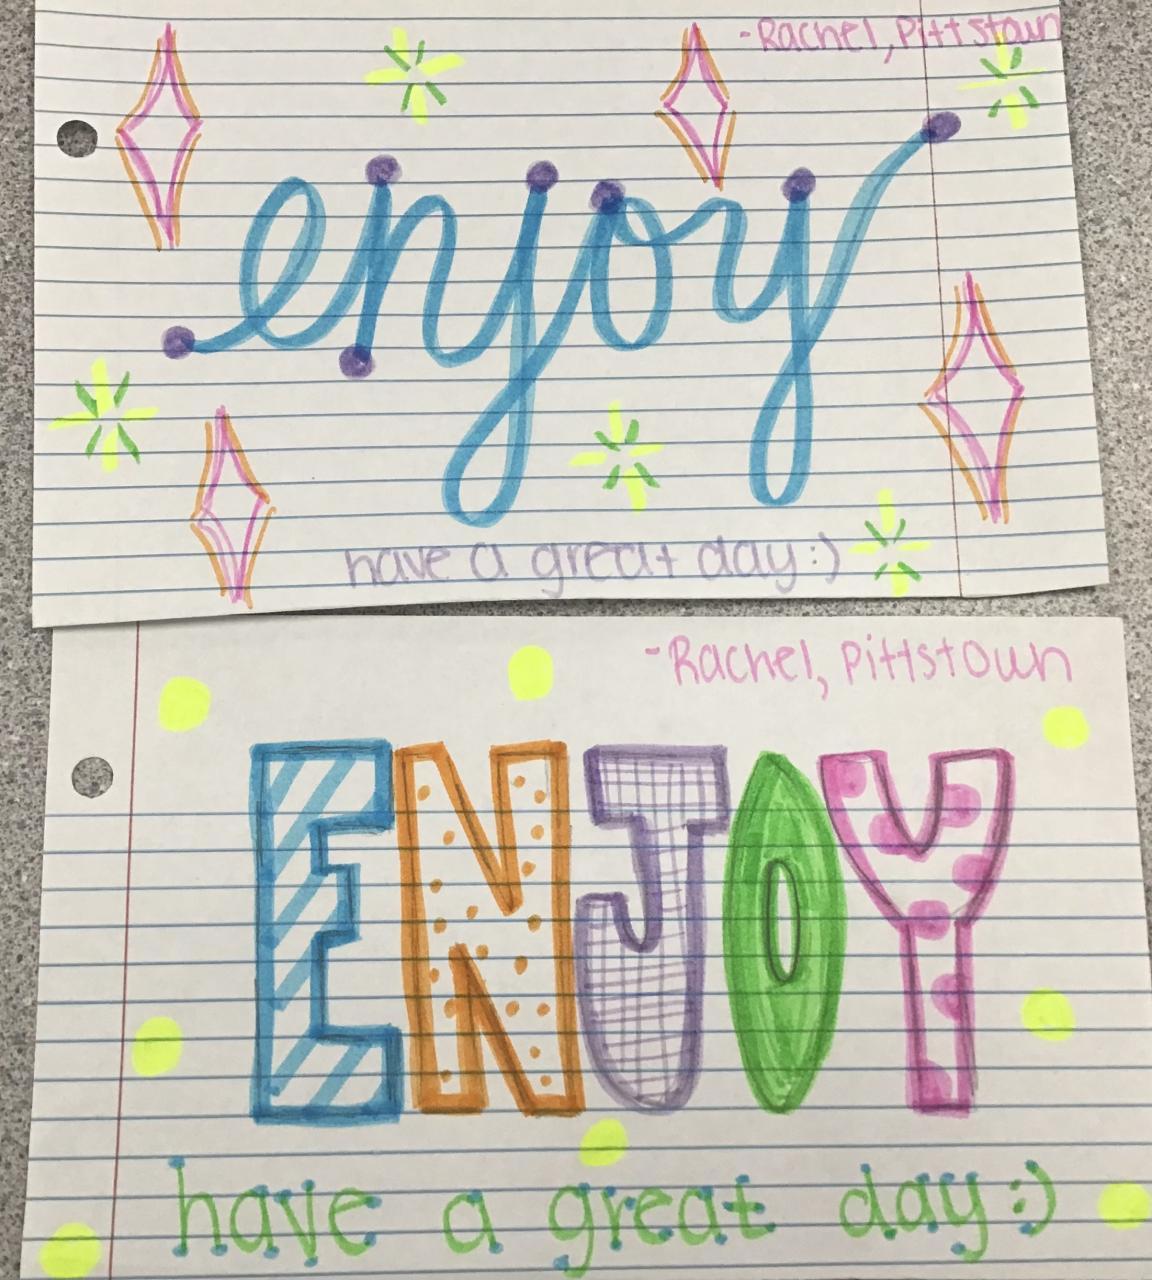 -Rachel, Pittstown
enjoy
have a great day:)
-Rachel, Pittstown
ENJOY
have a great day:)